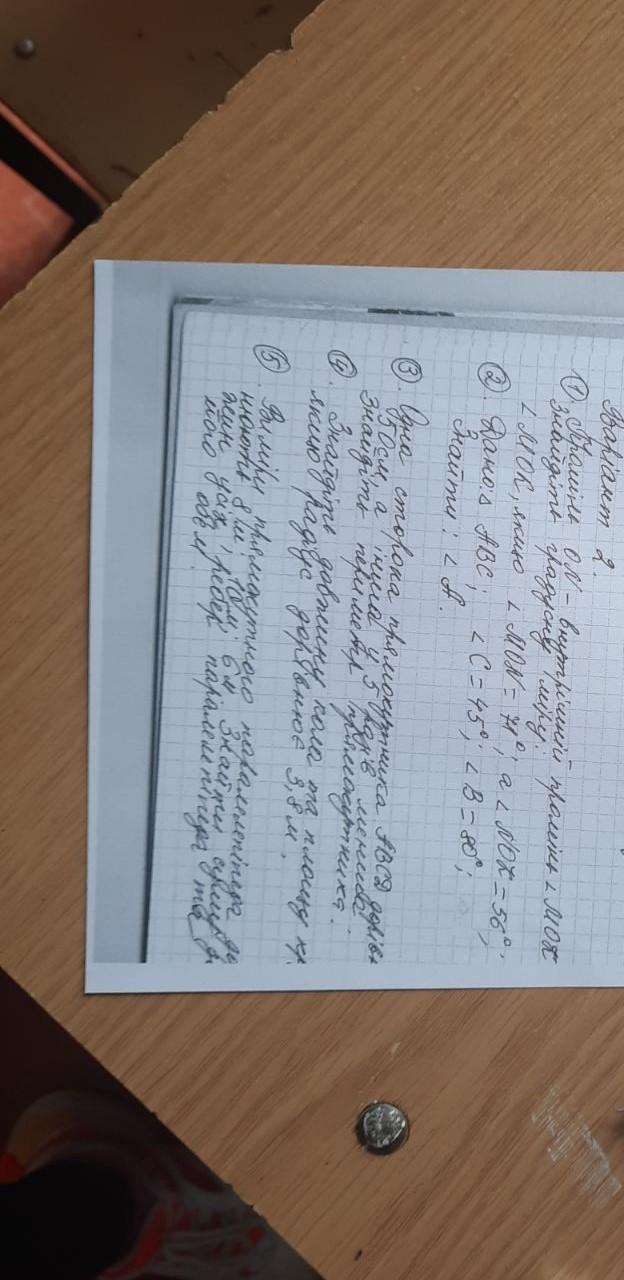 Варіант 2.
① Промінь ON – внутрішній промінь ∠MOK
Знайдіть градусну міру
∠MOK, якщо ∠MON = 74°, а ∠NOK = 56°.
② Дано: Δ ABC; ∠C = 45°; ∠B = 80°;
Знайти: ∠A.
③. Одна сторона прямокутника ABCD
150см, а інша у 5 разів менша.
Знайдіть периметр прямокутника.
④. Знайдіть довжину кола та площу
якщо радіус дорівнює 3,8 м.
⑤. Виміри прямокутного паралелепіпеда
8м; 6м. Знайти суму
усіх ребер паралелепіпеда та
його об'єм.